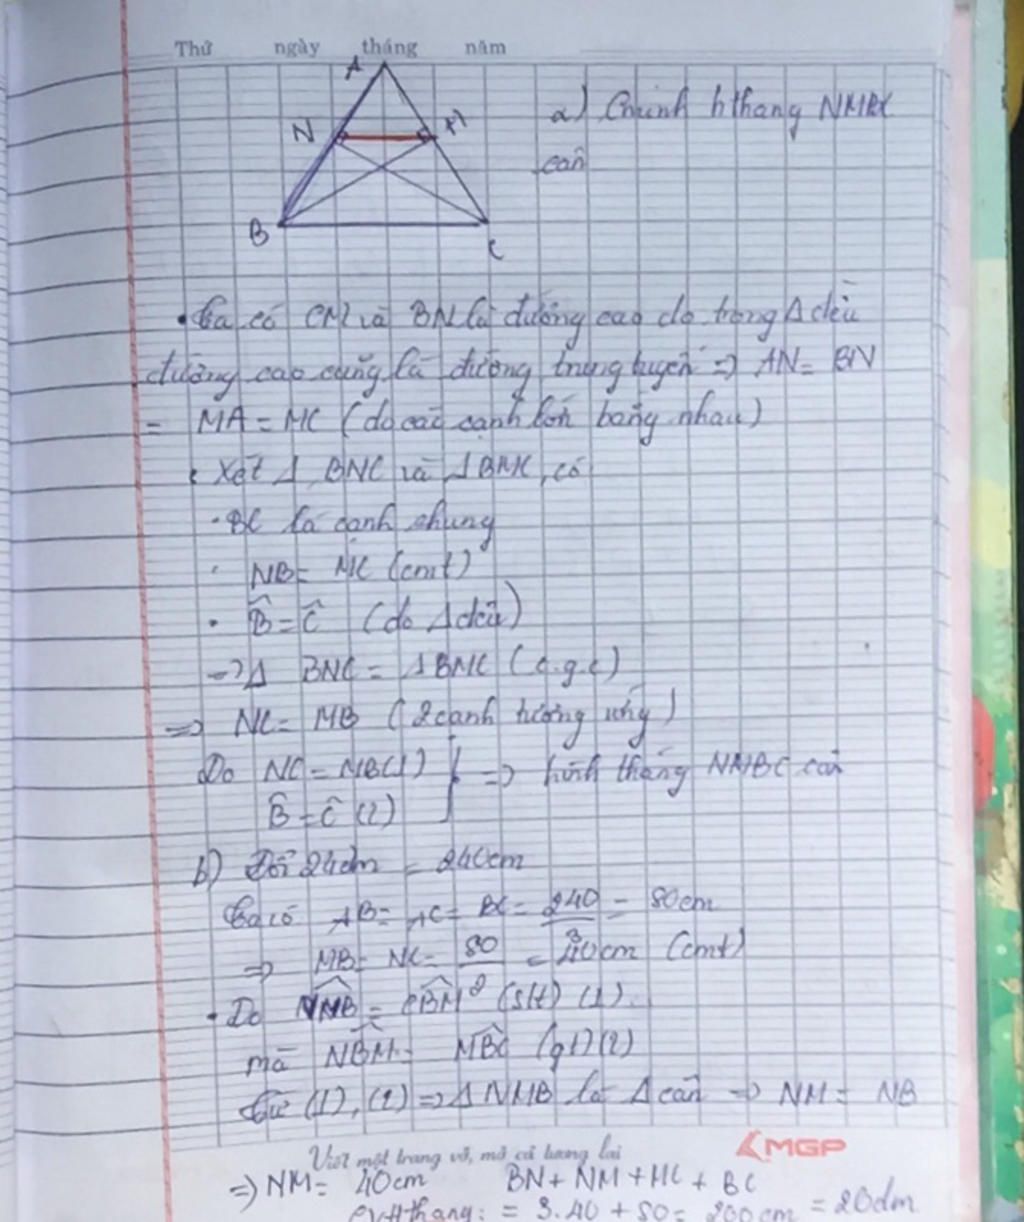 Thứ ngày tháng năm
A
N M
B C
a) Cminh hthang NMBC
cân
Ta có CM và BN là đường cao do trong Δ đều
đường cao cũng là đường trung tuyến => AN = BN
= MA = MC (do các cạnh bên bằng nhau)
Xét Δ BNC và Δ BMC, có
· BC là cạnh chung
· NB = MC (cmt)
· B̂ = Ĉ (do Δ đều)
=> Δ BNC = Δ BMC (c.g.c)
=> NC = MB (2 cạnh tương ứng)
Do NC = MB (1) } => hình thang NMBC cân
B̂ = Ĉ (2)
b) Đổi 24dm = 240cm
Ta có AB = AC = BC = 240/3 = 80cm
=> MB = NC = 80/2 = 40cm (cmt)
· Do NMB = CBM (slt) (1)
mà NBM = MBC (gt) (2)
Từ (1), (2) => Δ NMB là Δ cân => NM = NB
Viết một trang vở, mở cả tương lai
MGP
=> NM = 40cm BN + NM + MC + BC
CVHthang: = 3.40 + 80 = 200cm = 20dm